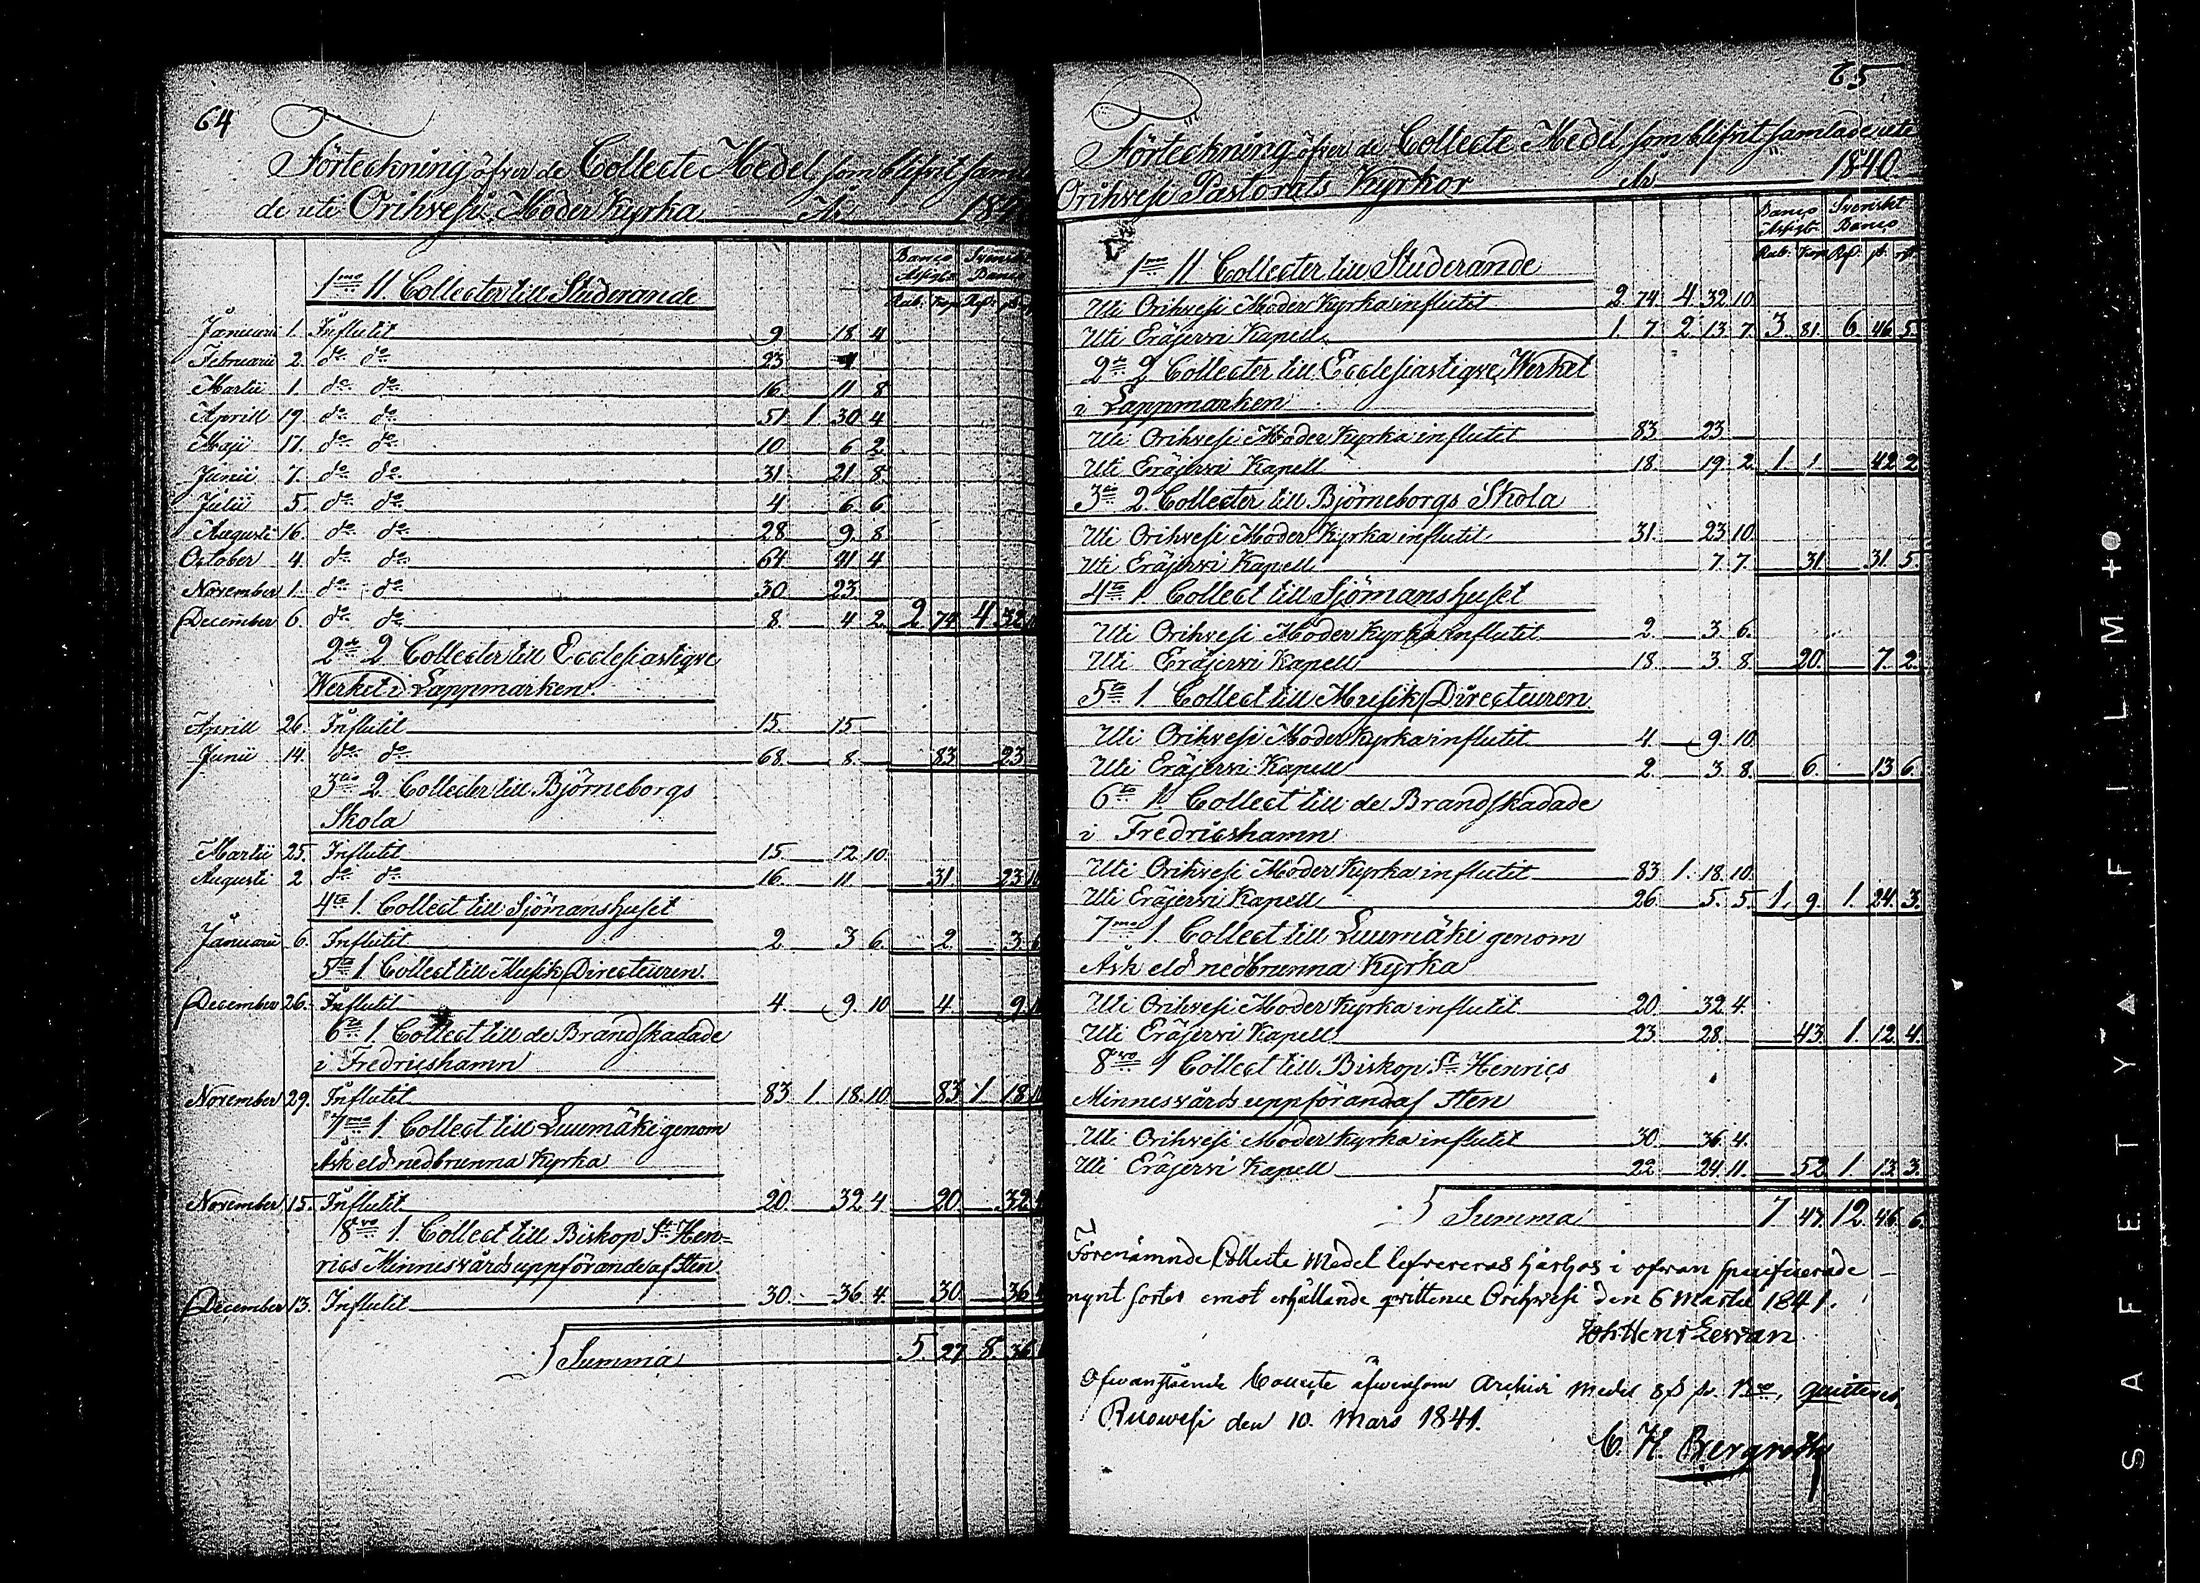 64
Förteckning öfver de Collecte Medel som blifvit samla
de uti Orihvesi Moder Kyrka År 184
Banco Assigt. Svenskt Banco
Rub. Kop. Rd. sk. 
1mo 11 Collecter till Studerande
Januarii 1. Influtit 9 18 4
Februarii 2. do do 23 4
Martii 1. do do 16. 11 8
Aprill 19. do do 51 1 30 4
Maji 17. do do 10 6 2
Junii 7. do do 31. 21 8.
Julii 5. do do 4 6 6
Augusti 16. do do 28 9. 8
October 4. do do 64 41 4
November 1. do do 30 23
December 6. do do 8. 4 2. 2 74 4 32 10
2do 2 Collecter till Ecclesiastiqve
Werket i Lappmarken
Aprill 26. Influtit 15. 15
Junii 14. do do 68. 8. 83 23
3tio 2. Collecter till Björneborgs
Skola
Martii 25. Influtit 15. 12 10.
Augusti 2 do do 16. 11 31 23 10
4to 1. Collect till Sjömanshuset
Januarii 6. Influtit 2 3 6. 2 3 6
5to 1 Collect till Musik Directeuren.
December 26. Influtit 4. 9. 10 4. 9 10
6to 1. Collect till de Brandskadade
i Fredricshamn
November 29. Influtit 83 1 18. 10 83 1 18 10
7mo 1. Collect till Luumäki genom
Ask eld nedbrunna Kyrka
November 15. Influtit 20. 32 4 20 32 4
8vo 1. Collect till Biskop St. Hen=
rics Minnesvårds uppförande af Sten
December 13. Influtit 30. 36. 4. 30 36 4
Summa 5. 27 8. 36
65
Förteckning öfver de Collecte Medel som blifvit samlade uti
Orihvesi Pastorats Kyrkor År 1840
Banco Assigt. Svenskt Banco
Rub. Kop Rd. sk. rst.
1mo 11 Collecter till Studerande
Uti Orihvesi Moder Kyrka influtit 2 74 4 32 10
Uti Eräjerwi Kapell 1. 7 2 13 7 3 81. 6. 46 5.
2do 2 Collecter till Ecclesiastiqve Werket
i Lappmarken
Uti Orihvesi Moder Kyrka influtit 83 23
Uti Eräjerwi Kapell 18. 19 2. 1 1 42 2
3tio 2. Collecter till Björneborgs Skola
Uti Orihvesi Moder Kyrka influtit. 31. 23 10.
Uti Eräjerwi Kapell 7 7. 31 31. 5.
4to 1. Collect till Sjömanshuset
Uti Orihvesi Moder Kyrka influtit 2. 3 6.
Uti Eräjerwi Kapell 18. 3. 8. 20. 7. 2.
5to 1 Collect till Musik Directeuren
Uti Orihvesi Moder Kyrka influtit 4 9. 10.
Uti Eräjerwi Kapell 2. 3. 8. 6. 13 6.
6to 1. Collect till de Brandskadade
i Fredricshamn
Uti Orihvesi Moder Kyrka influtit 83 1. 18. 10.
Uti Eräjerwi Kapell 26. 5. 5. 1. 9. 1. 24. 3.
7mo 1. Collect till Luumäki genom
Ask eld nedbrunna Kyrka
Uti Orihvesi Moder Kyrka influtit 20 32 4.
Uti Eräjerwi Kapell 23. 28. 43. 1. 12 4.
8vo 1 Collect till Biskop St. Henrics
Minnesvårds uppförand af Sten
Uti Orihvesi Moder Kyrka influtit 30. 36 4.
Uti Eräjerwi Kapell 22 24 11. 52 1 13 3.
Summa 7 43 12 46. 6.
Förenämnde Collecte Medel lefvereras härhos i ofvan specificerade
mynt sorter emot erhållande qvittence Orihvesi den 6 Martii 1841.
Joh: Henr Lewan
Ofvanstående Collecte äfvensom Archivi Medel 8 s. Bco, quitteras.
Ruowesi den 10. Mars 1841.
C. H. Bergroth
SAFETY FILM